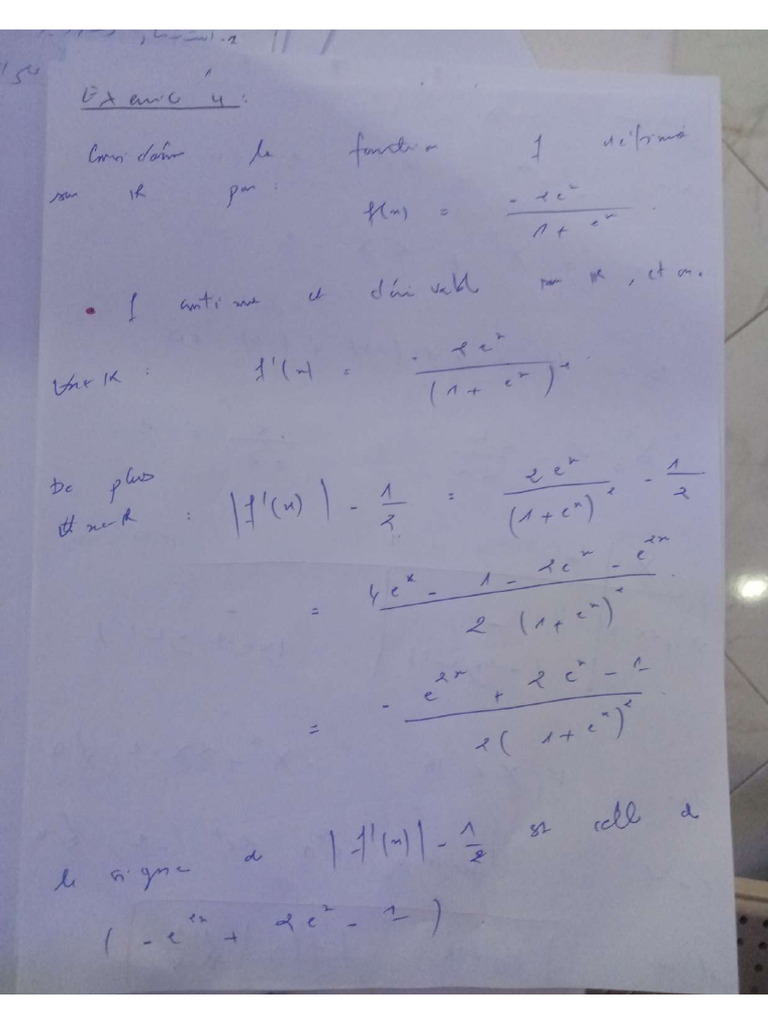 Exercice 4 :
Considérons la fonction f définie
sur IR par : f(x) = - 2e^x / (1 + e^x)
• f continue et dérivable sur IR, et on.
∀x∈IR : f'(x) = - 2e^x / (1 + e^x)^2
De plus
∀x∈IR : |f'(x)| - 1/2 = 2e^x / (1 + e^x)^2 - 1/2
= (4e^x - 1 - 2e^x - e^2x) / 2(1 + e^x)^2
= (- e^2x + 2e^x - 1) / 2(1 + e^x)^2
le signe de |f'(x)| - 1/2 est celle de
( - e^2x + 2e^x - 1 )